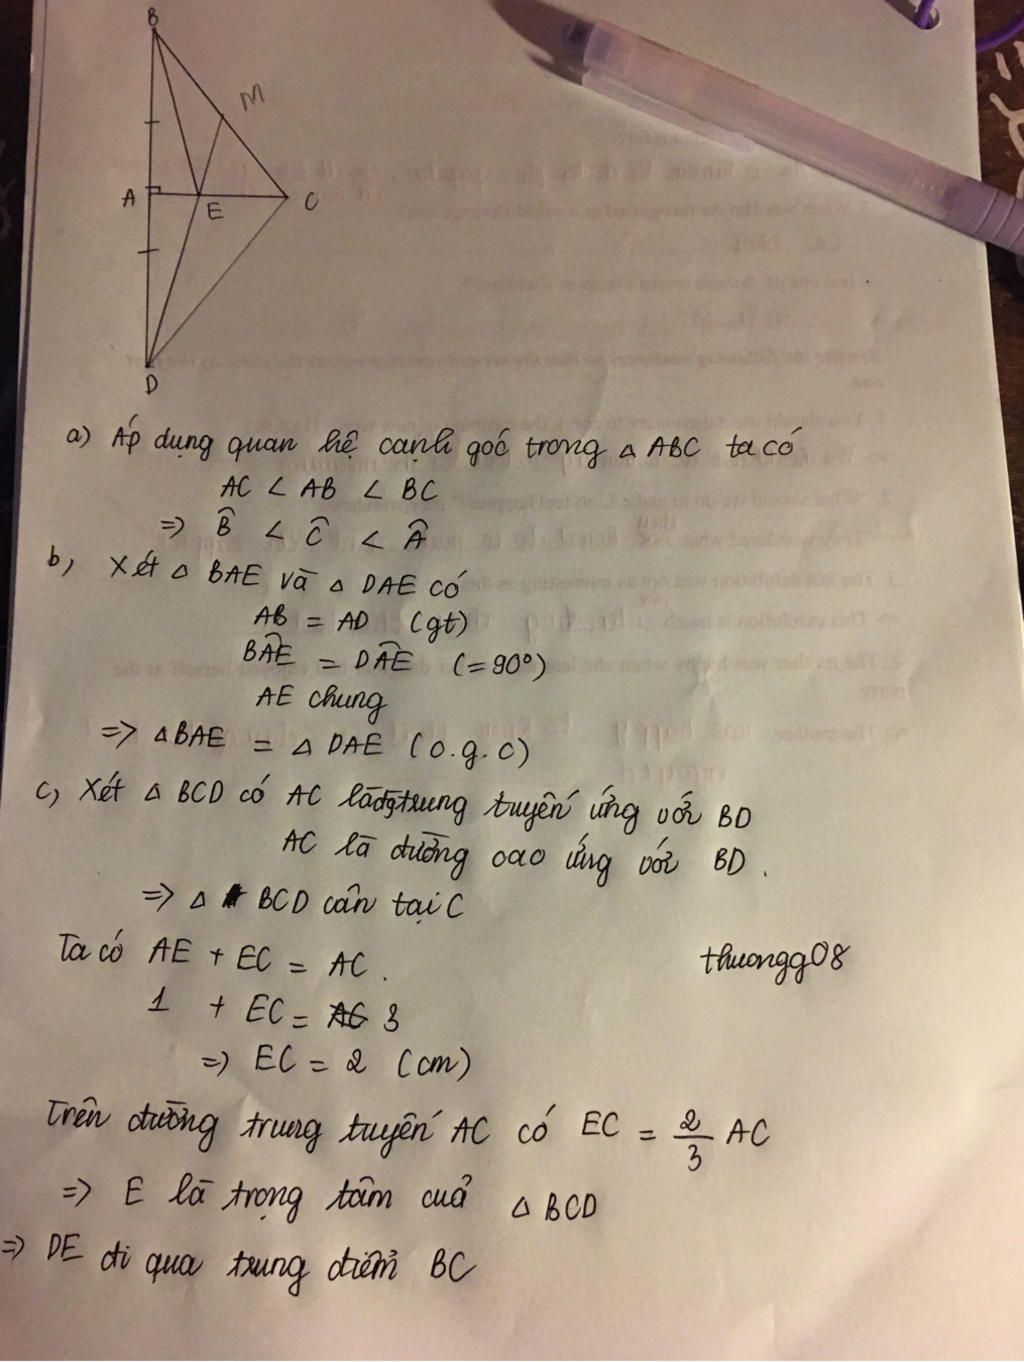 B
M
A
E
C
D
a) Áp dụng quan hệ cạnh góc trong △ ABC ta có
AC < AB < BC
=> B̂ < Ĉ < Â
b, Xét △ BAE và △ DAE có
AB = AD (gt)
BÂE = DÂE (= 90°)
AE chung
=> △BAE = △ DAE (c.g.c)
c, Xét △ BCD có AC là đg trung tuyến ứng với BD
AC là đường cao ứng với BD.
=> △ BCD cân tại C
Ta có AE + EC = AC.
thuongg08
1 + EC = 3
=> EC = 2 (cm)
Trên đường trung tuyến AC có EC = 2/3 AC
=> E là trọng tâm cuả △ BCD
=> DE đi qua trung điểm BC